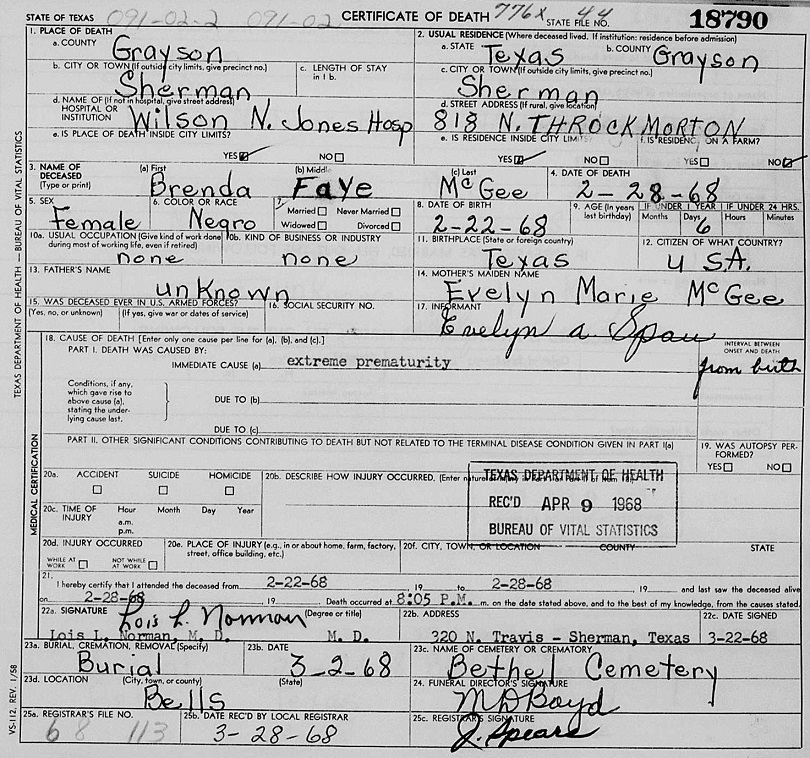 STATE OF TEXAS 091-02-2 091-02 CERTIFICATE OF DEATH 776X STATE FILE NO. 44 18790
1. PLACE OF DEATH
a. COUNTY Grayson
2. USUAL RESIDENCE (Where deceased lived. If institution: residence before admission)
a. STATE Texas b. COUNTY Grayson
b. CITY OR TOWN (If outside city limits, give precinct no.) Sherman
c. LENGTH OF STAY in 1 b.
c. CITY OR TOWN (If outside city limits, give precinct no.) Sherman
d. NAME OF (If not in hospital, give street address) HOSPITAL OR INSTITUTION Wilson N. Jones Hosp
d. STREET ADDRESS (If rural, give location) 818 N. THROCKMORTON
e. IS PLACE OF DEATH INSIDE CITY LIMITS? YES NO
e. IS RESIDENCE INSIDE CITY LIMITS? YES NO
f. IS RESIDENCE ON A FARM? YES NO
3. NAME OF DECEASED (Type or print)
(a) First Brenda
(b) Middle Faye
(c) Last McGee
4. DATE OF DEATH 2-28-68
5. SEX Female
6. COLOR OR RACE Negro
7. Married Never Married
Widowed Divorced
8. DATE OF BIRTH 2-22-68
9. AGE (In years last birthday) IF UNDER 1 YEAR Months Days 6 IF UNDER 24 HRS. Hours Minutes
10a. USUAL OCCUPATION (Give kind of work done during most of working life, even if retired) none
10b. KIND OF BUSINESS OR INDUSTRY none
11. BIRTHPLACE (State or foreign country) Texas
12. CITIZEN OF WHAT COUNTRY? USA.
13. FATHER'S NAME unknown
14. MOTHER'S MAIDEN NAME Evelyn Marie McGee
15. WAS DECEASED EVER IN U.S. ARMED FORCES?
(Yes, no, or unknown) (If yes, give war or dates of service)
16. SOCIAL SECURITY NO.
17. INFORMANT Evelyn a. Spau
18. CAUSE OF DEATH [Enter only one cause per line for (a), (b), and (c).]
PART I. DEATH WAS CAUSED BY:
IMMEDIATE CAUSE (a) extreme prematurity
INTERVAL BETWEEN ONSET AND DEATH from birth
Conditions, if any, which gave rise to above cause (a), stating the underlying cause last.
DUE TO (b)
DUE TO (c)
PART II. OTHER SIGNIFICANT CONDITIONS CONTRIBUTING TO DEATH BUT NOT RELATED TO THE TERMINAL DISEASE CONDITION GIVEN IN PART I(a)
19. WAS AUTOPSY PERFORMED? YES NO
20a. ACCIDENT SUICIDE HOMICIDE
20b. DESCRIBE HOW INJURY OCCURRED. (Enter
TEXAS DEPARTMENT OF HEALTH
REC'D APR 9 1968
BUREAU OF VITAL STATISTICS
20c. TIME OF INJURY Hour Month Day Year
a.m.
p.m.
20d. INJURY OCCURRED
WHILE AT WORK NOT WHILE AT WORK
20e. PLACE OF INJURY (e.g., in or about home, farm, factory, street, office building, etc.)
20f. CITY, TOWN, OR LOCATION COUNTY STATE
21. I hereby certify that I attended the deceased from 2-22-68 19 to 2-28-68, 19 and last saw the deceased alive
on 2-28-68, 19 Death occurred at 8:05 P.M. m. on the date stated above, and to the best of my knowledge, from the causes stated.
22a. SIGNATURE Lois L. Norman (Degree or title)
Lois L. Norman, M. D. M. D.
22b. ADDRESS 320 N. Travis - Sherman, Texas
22c. DATE SIGNED 3-22-68
23a. BURIAL, CREMATION, REMOVAL (Specify) Burial
23b. DATE 3-2-68
23c. NAME OF CEMETERY OR CREMATORY Bethel Cemetery
23d. LOCATION (City, town, or county) (State) Bells
24. FUNERAL DIRECTOR'S SIGNATURE M D Boyd
25a. REGISTRAR'S FILE NO. 68 113
25b. DATE REC'D BY LOCAL REGISTRAR 3-28-68
25c. REGISTRAR'S SIGNATURE J. Spears
TEXAS DEPARTMENT OF HEALTH — BUREAU OF VITAL STATISTICS
MEDICAL CERTIFICATION
VS-112, REV. 1/58